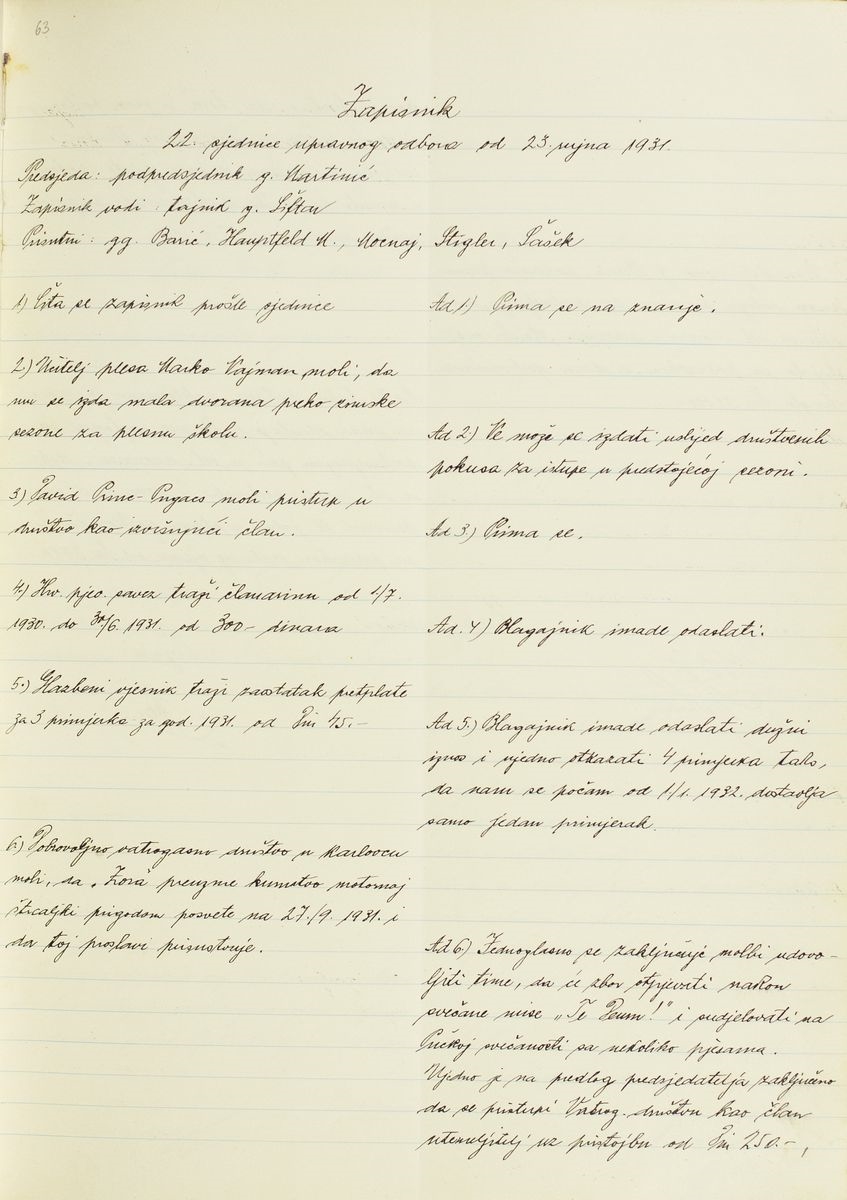 63
Zapisnik
22. sjednice upravnog odbora od 23. rujna 1931.
Predsjeda: podpredsjednik g. Martinić
Zapisnik vodi: tajnik g. Šiftar
Prisutni: gg. Barić, Hauptfeld M., Mocnaj, Stigler, Šašek
1) Čita se zapisnik prošle sjednice
Ad 1) Prima se na znanje.
2.) Učitelj plesa Marko Vajman moli, da
mu se izda mala dvorana preko zimske
sezone za plesnu školu.
Ad 2.) Ne može se izdati uslijed društvenih
pokusa za istupe u predstojećoj sezoni.
3) David Princ- moli pristup u
društvo kao izvršujući član.
Ad 3.) Prima se.
4.) Hrv. pjev. savez traži članarinu od 1/7.
1930. do 30/6. 1931. od 300- dinara
Ad. 4) Blagajnik imade odaslati.
5.) Glazbeni vjesnik traži zaostatak pretplate
za 3 primjerka za god. 1931. od Din 45.-
Ad 5.) Blagajnik imade odaslati dužni
iznos i ujedno otkazati 4 primjerka tako,
da nam se počam od 1/1. 1932. dostavlja
samo jedan primjerak.
6.) Dobrovoljno vatrogasno društvo u Karlovcu
moli, da „Zora" preuzme kumstvo motornoj
štrcaljki prigodom posvete na 27./9. 1931. i
da toj proslavi prisustvuje.
Ad 6) Jednoglasno se zaključuje molbi udovo-
ljiti time, da će zbor otpjevati nakon
svečane mise „Te Deum!" i sudjelovati na
Pučkoj svečanosti sa nekoliko pjesama.
Ujedno je na predlog predsjedatelja zaključeno
da se pristupi Vatrog. društvu kao član
utemeljitelj uz pristojbu od Din 250.-,